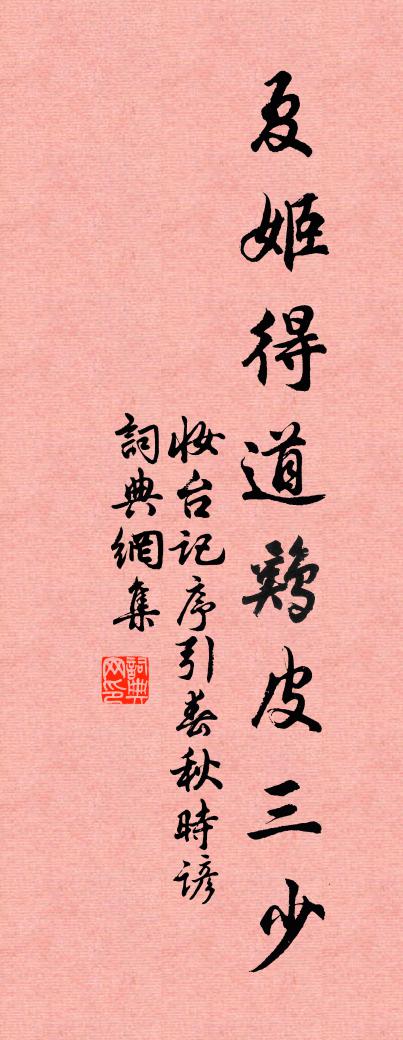 夏姬得道鷄皮三少
妝台記序引春秋時諺
詞典網集
詞典網印